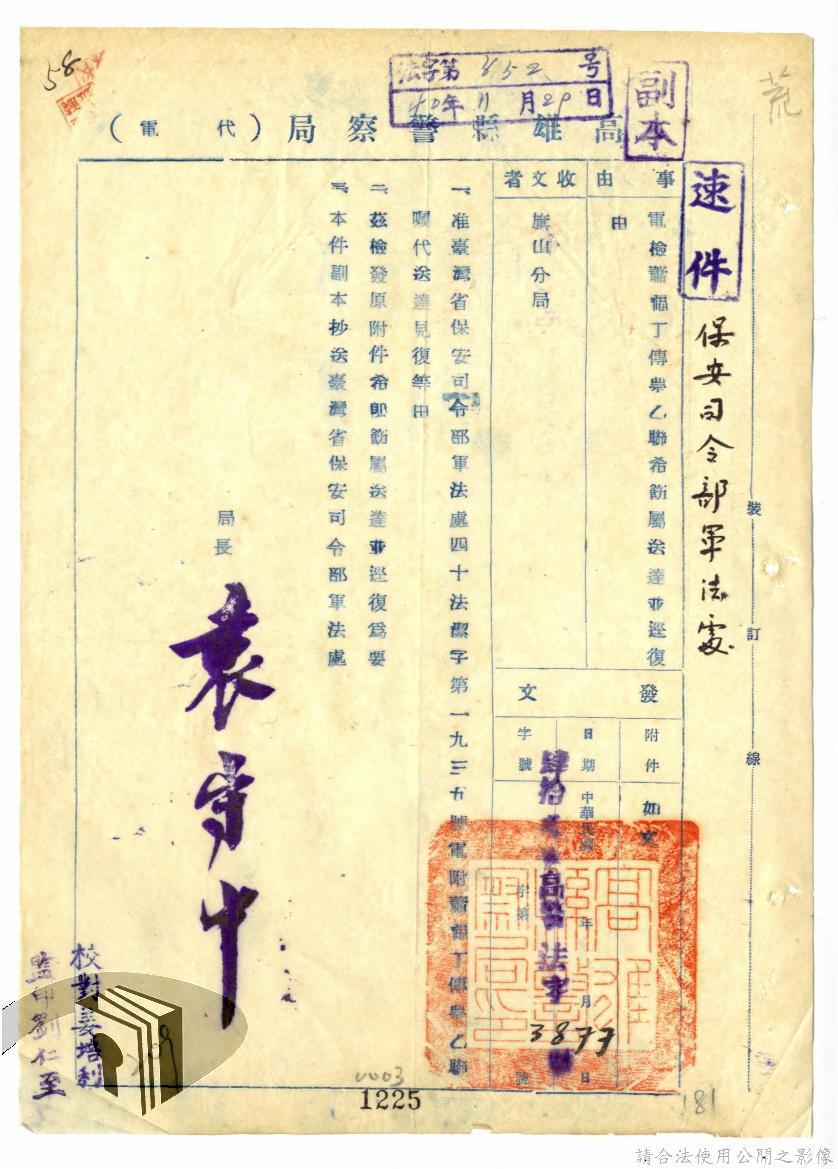 58
法字第852號
40年11月29日
副本
荒
高雄縣警察局（代電）
速件
保安司令部軍法處
裝訂線
事由
電檢蕭福丁傳票乙聯希飭屬送達並逕復由
收文者
旗山分局
發文
附件
如文
日期
中華民國 年 月 日
字號
高警法字
字第 號
3877
一、准臺灣省保安司令部軍法處四十法潔字第一九三五號電附蕭福丁傳票乙聯
囑代送達見復等由
二、茲檢發原附件希即飭屬送達並逕復為要
三、本件副本抄送臺灣省保安司令部軍法處
局長
袁守中
校對姜培利
監印劉仁至
0003
1225
181
請合法使用公開之影像